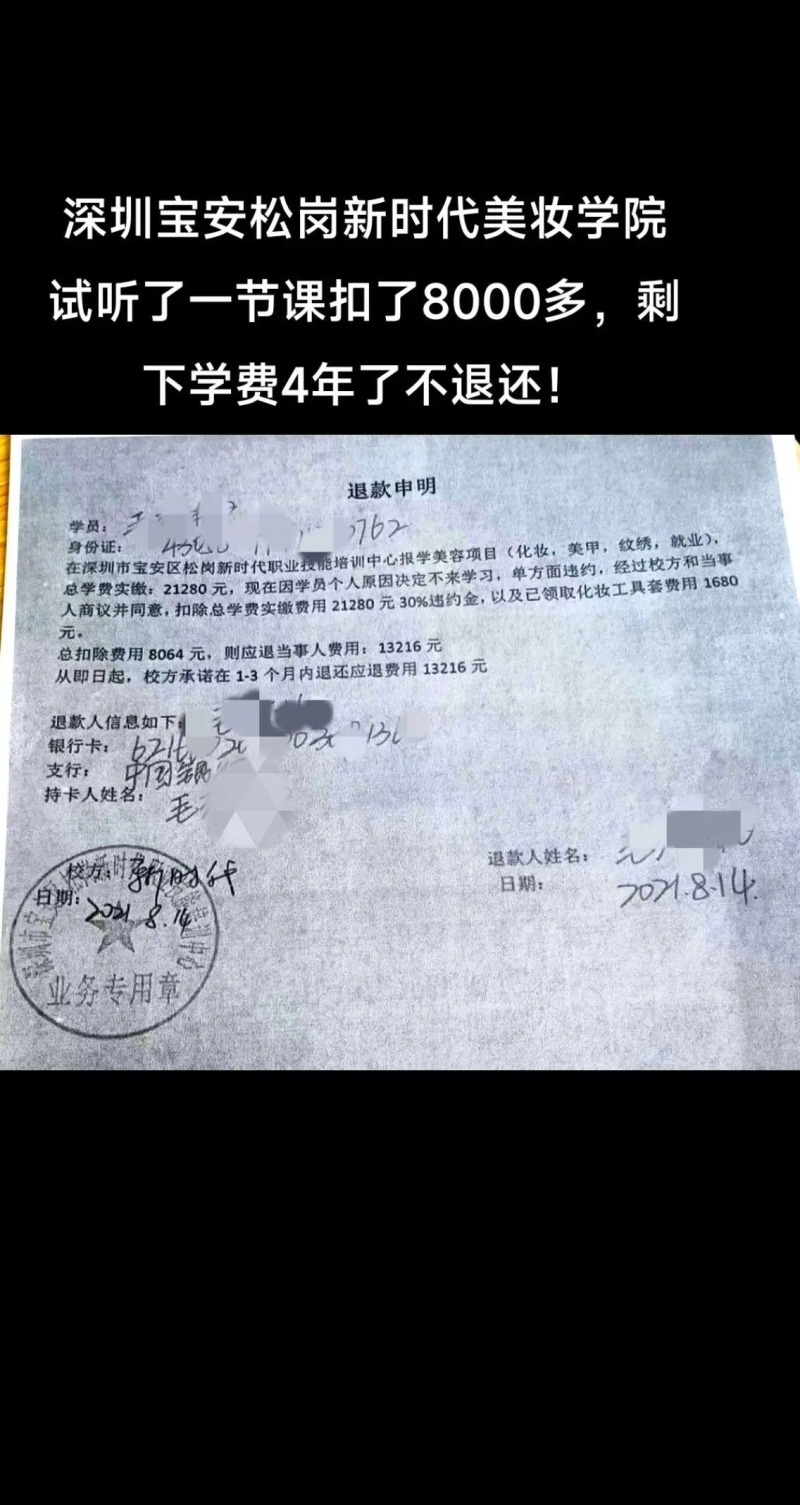 深圳宝安松岗新时代美妆学院
试听了一节课扣了8000多，剩
下学费4年了不退还！
退款申明
学员：
身份证： 3762
在深圳市宝安区松岗新时代职业技能培训中心报学美容项目（化妆，美甲，纹绣，就业），
总学费实缴：21280 元，现在因学员个人原因决定不来学习，单方面违约，经过校方和当事
人商议并同意，扣除总学费实缴费用 21280 元 30%违约金，以及已领取化妆工具套费用 1680
元。
总扣除费用 8064 元，则应退当事人费用：13216 元
从即日起，校方承诺在 1-3 个月内退还应退费用 13216 元
退款人信息如下：
银行卡：
支行： 中国
持卡人姓名： 毛
校方： 新时代
日期： 2021.8.14
业务专用章
退款人姓名：
日期： 2021.8.14.